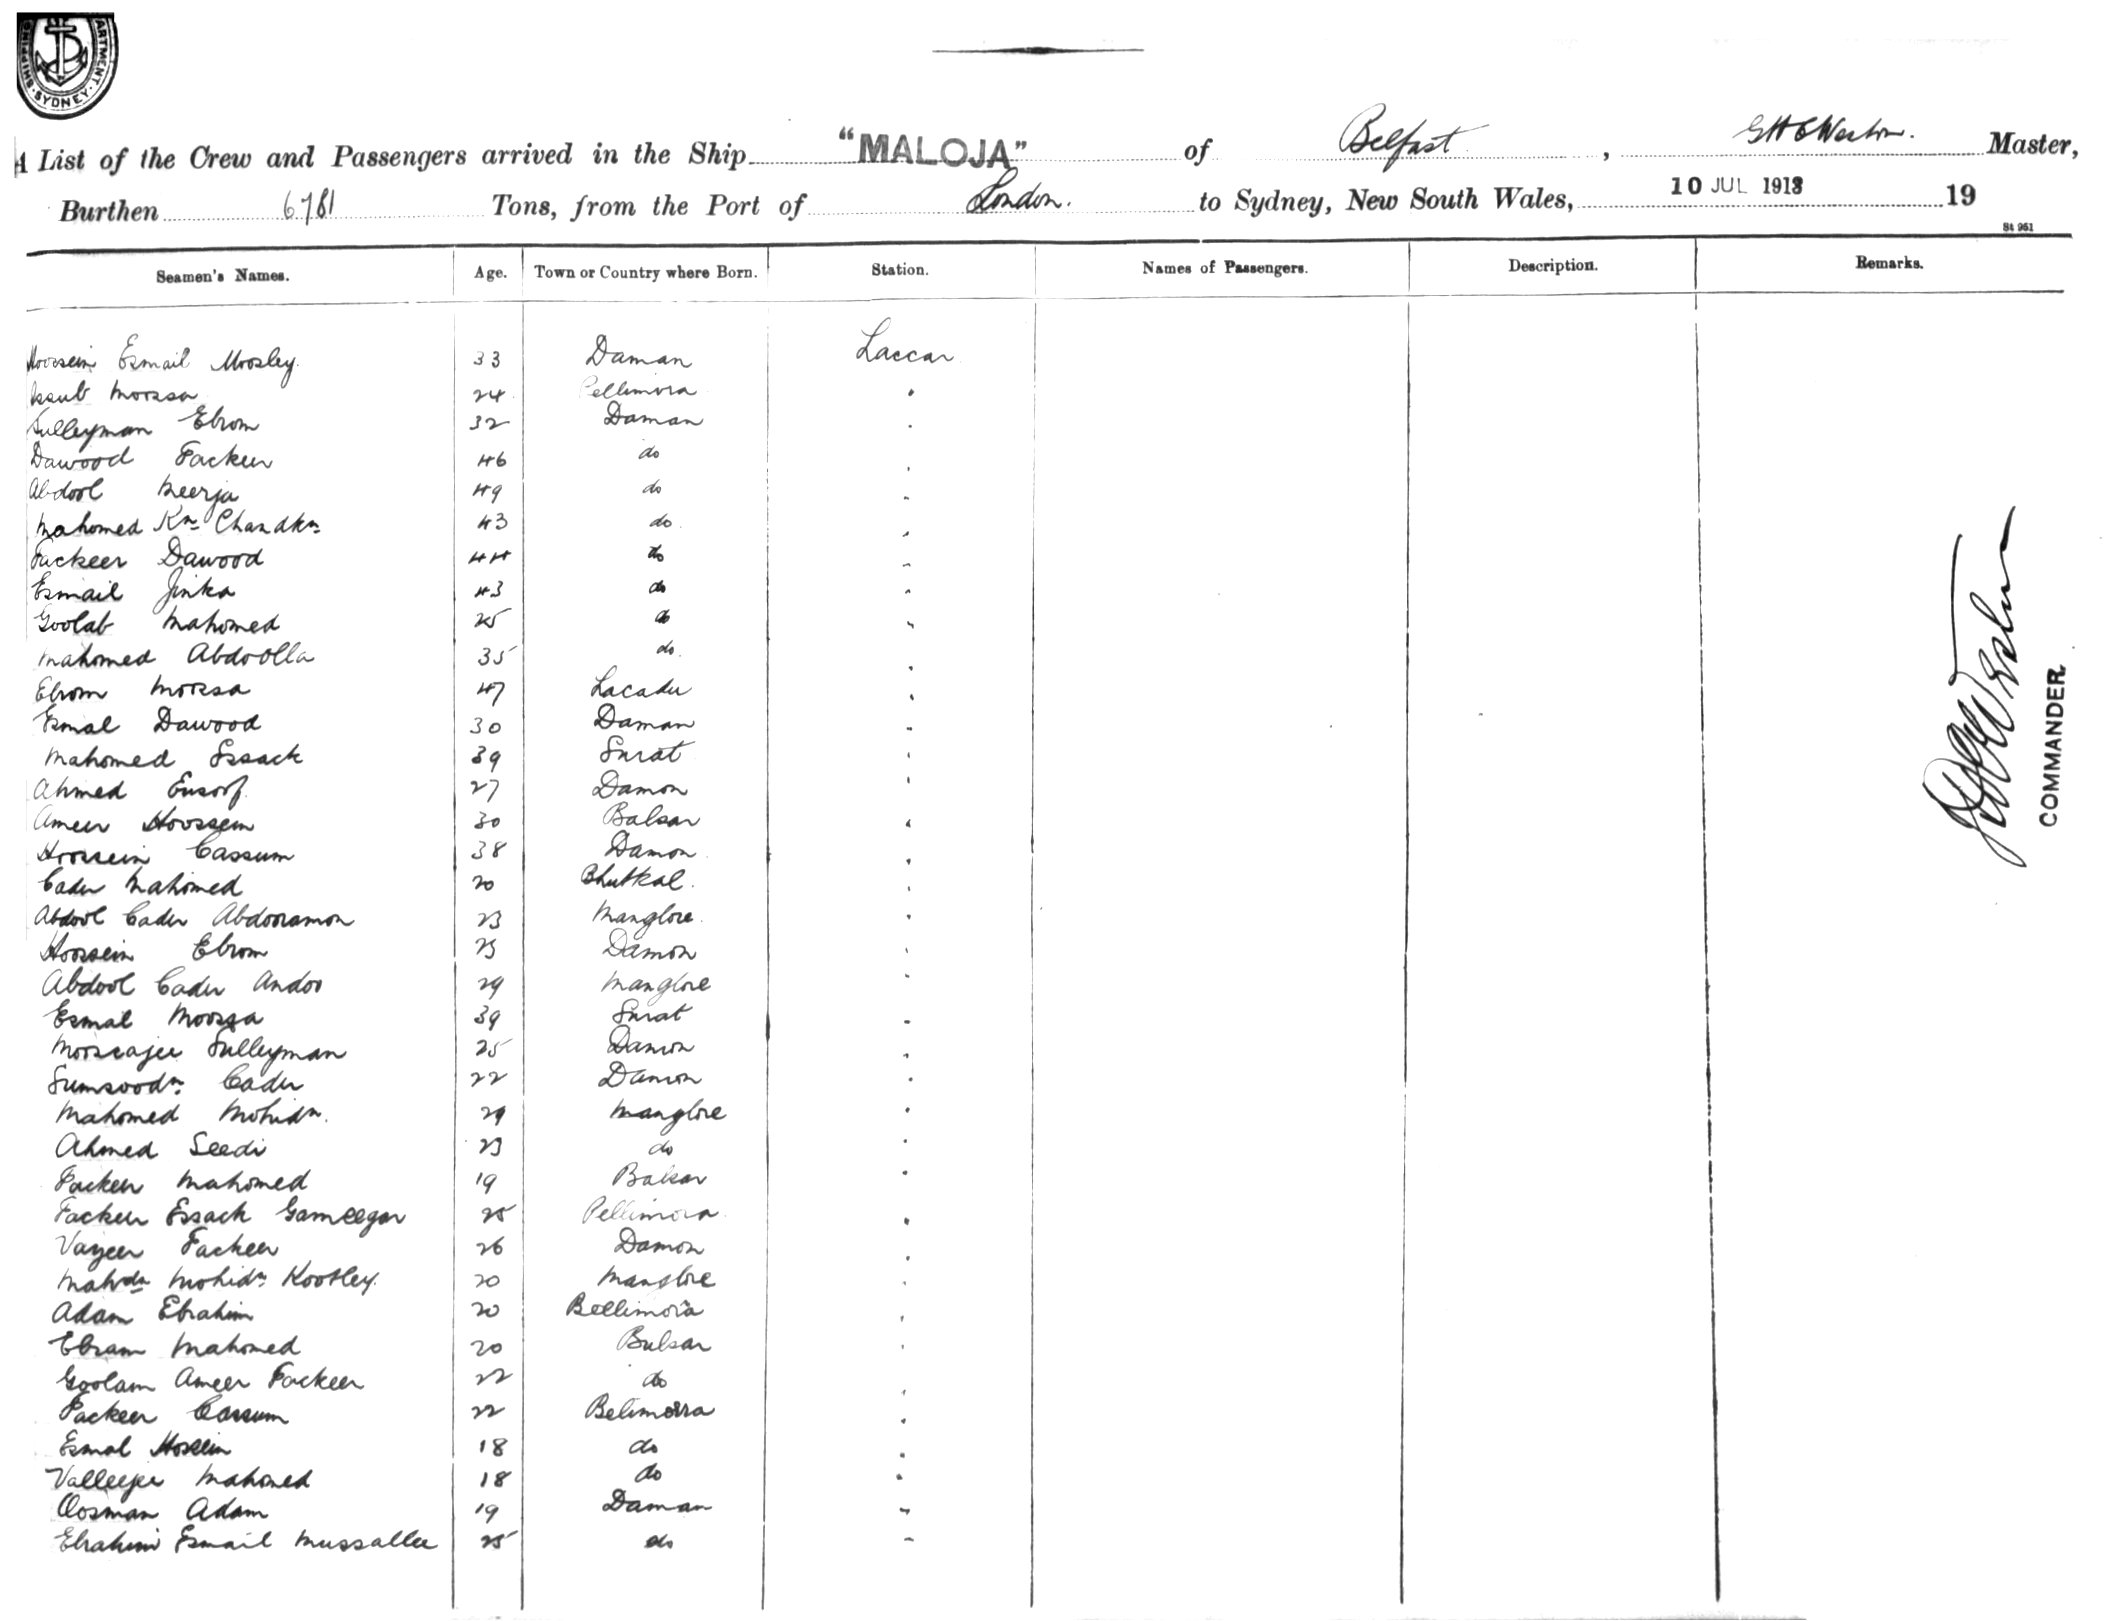 SHIPPING DEPARTMENT. SYDNEY
A List of the Crew and Passengers arrived in the Ship "MALOJA" of Belfast, Master,
Burthen 6781 Tons, from the Port of London. to Sydney, New South Wales, 10 JUL 1913 19
St 951
Seamen's Names. Age. Town or Country where Born. Station. Names of Passengers. Description. Remarks.
Hoossein Esmail Moosley 33 Daman Lascar
Issub Moossa 24 Pellimora "
Sulleyman Ebrom 32 Daman "
Dawood Fackeer 46 do "
Abdool Meerja 49 do "
Mahomed Kn Chandkn 43 do "
Fackeer Dawood 44 do "
Esmail Jinka 43 do "
Goolab Mahomed 25 do "
Mahomed Abdoolla 35 do "
Ebrom Moossa 47 "
Esmal Dawood 30 Daman "
Mahomed Essack 39 Surat "
Ahmed Eusoof 27 Damon "
Ameer Hoossein 30 Balsar "
Hoossein Cassum 38 Damon "
Cader Mahomed 20 Bhutkal. "
Abdool Cader Abdooramon 23 Manglore "
Hoossein Ebrom 23 Damon "
Abdool Cader Andoo 29 Manglore "
Esmal Moossa 39 Surat "
Moossajee Sulleyman 25 Damon "
Sumsoodn Cader 22 Damon "
Mahomed Mohidn. 29 Manglore "
Ahmed Seedi 23 do "
Fackeer Mahomed 19 Balsar "
Fackeer Essack Gameegar 25 Pellimora "
Vazeer Fackeer 26 Damon "
Mahdn Mohidn Kootley. 20 Manglore "
Adam Ebrahim 20 Bellimora "
Ebram Mahomed 20 Bulsar "
Goolam Ameer Fackeer 22 do "
Fackeer Cassum 22 Belimorra "
Esmal Hossein 18 do "
Valleejee Mahomed 18 do "
Oosman Adam 19 Daman "
Ebrahim Esmail Mussallee 25 do "
COMMANDER.